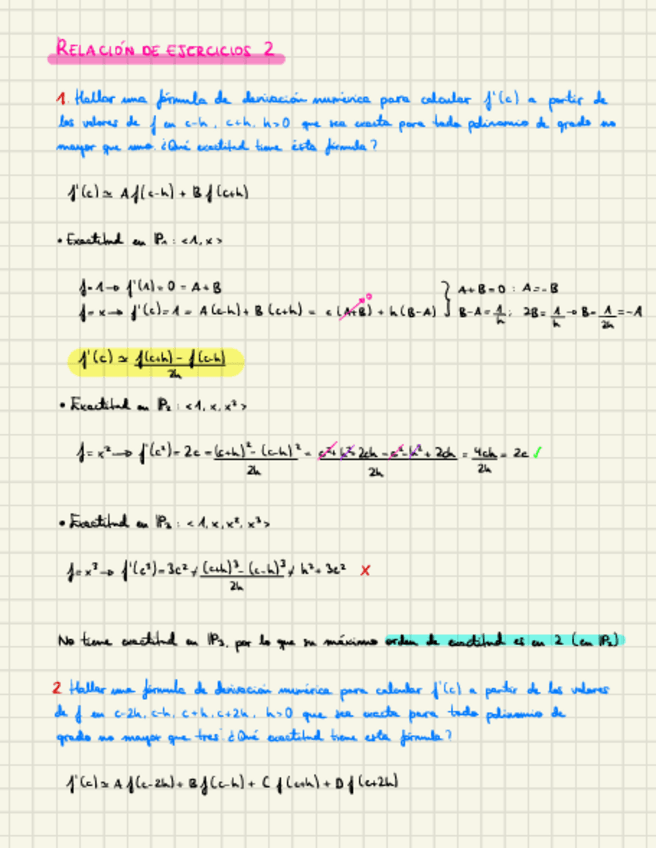 RELACIÓN DE EJERCICIOS 2
1. Hallar una fórmula de derivación numérica para calcular f'(c) a partir de
los valores de f en c-h, c+h, h>0 que sea exacta para todo polinomio de grado no
mayor que uno. ¿Qué exactitud tiene esta fórmula?
f'(c) ≃ A f(c-h) + B f(c+h)
• Exactitud en P₁: <1, x>
f=1 → f'(1)=0 = A+B } A+B=0 : A=-B
f=x → f'(c)=1 = A(c-h) + B(c+h) = c(A+B)→0 + h(B-A) } B-A=1/h ; 2B=1/h → B=1/2h=-A
f'(c) ≃ (f(c+h) - f(c-h))/2h
• Exactitud en P₂: <1, x, x²>
f=x² → f'(c²)=2c = ((c+h)² - (c-h)²)/2h = (c²+h²+2ch-c²-h²+2ch)/2h = 4ch/2h = 2c ✓
• Exactitud en P₃: <1, x, x², x³>
f=x³ → f'(c³)=3c² ≠ ((c+h)³ - (c-h)³)/2h ≠ h²+3c² ✗
No tiene exactitud en P₃, por lo que su máximo orden de exactitud es en 2 (en P₂)
2 Hallar una fórmula de derivación numérica para calcular f'(c) a partir de los valores
de f en c-2h, c-h, c+h, c+2h, h>0 que sea exacta para todo polinomio de
grado no mayor que tres ¿Qué exactitud tiene esta fórmula?
f'(c) ≃ A f(c-2h) + B f(c-h) + C f(c+h) + D f(c+2h)